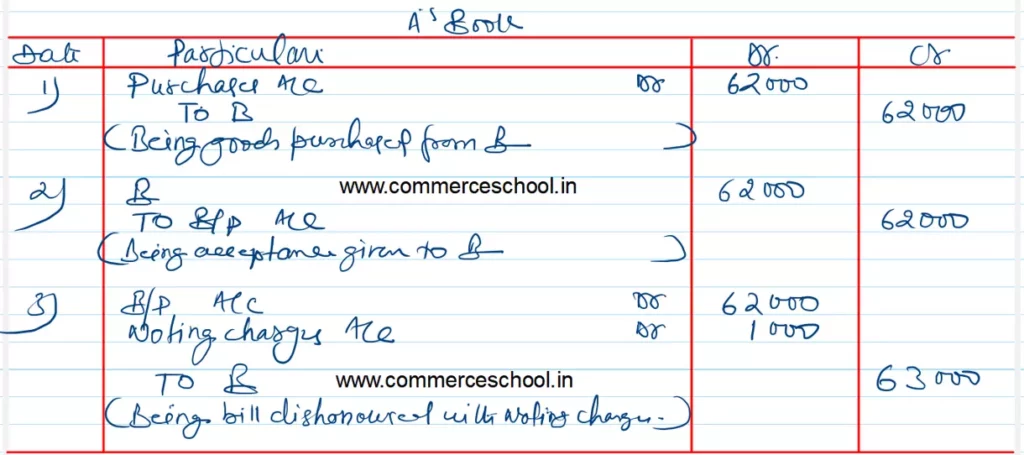 A's Book
Date Particulars Dr. Cr
1) Purchases A/c Dr 62000
To B 62000
(Being goods purchased from B)
2) B www.commerceschool.in 62000
To B/P A/c 62000
(Being acceptance given to B)
3) B/P A/c Dr 62000
Noting charges A/c Dr 1000
To B www.commerceschool.in 63000
(Being bill dishonoured with Noting charges.)